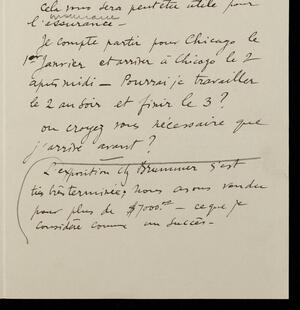 Cela vous sera peut être utile pour
l'assurance —
Je compte partir pour Chicago le
1er Janvier et arriver à Chicago le 2
après midi — Pourrai je travailler
le 2 au soir et finir le 3 ?
ou croyez vous nécessaire que
j'arrive avant ?
L'exposition chez Brummer s'est
très bien terminée; nous avons vendu
pour plus de $7000.00 — ce que je
considère comme un succès —